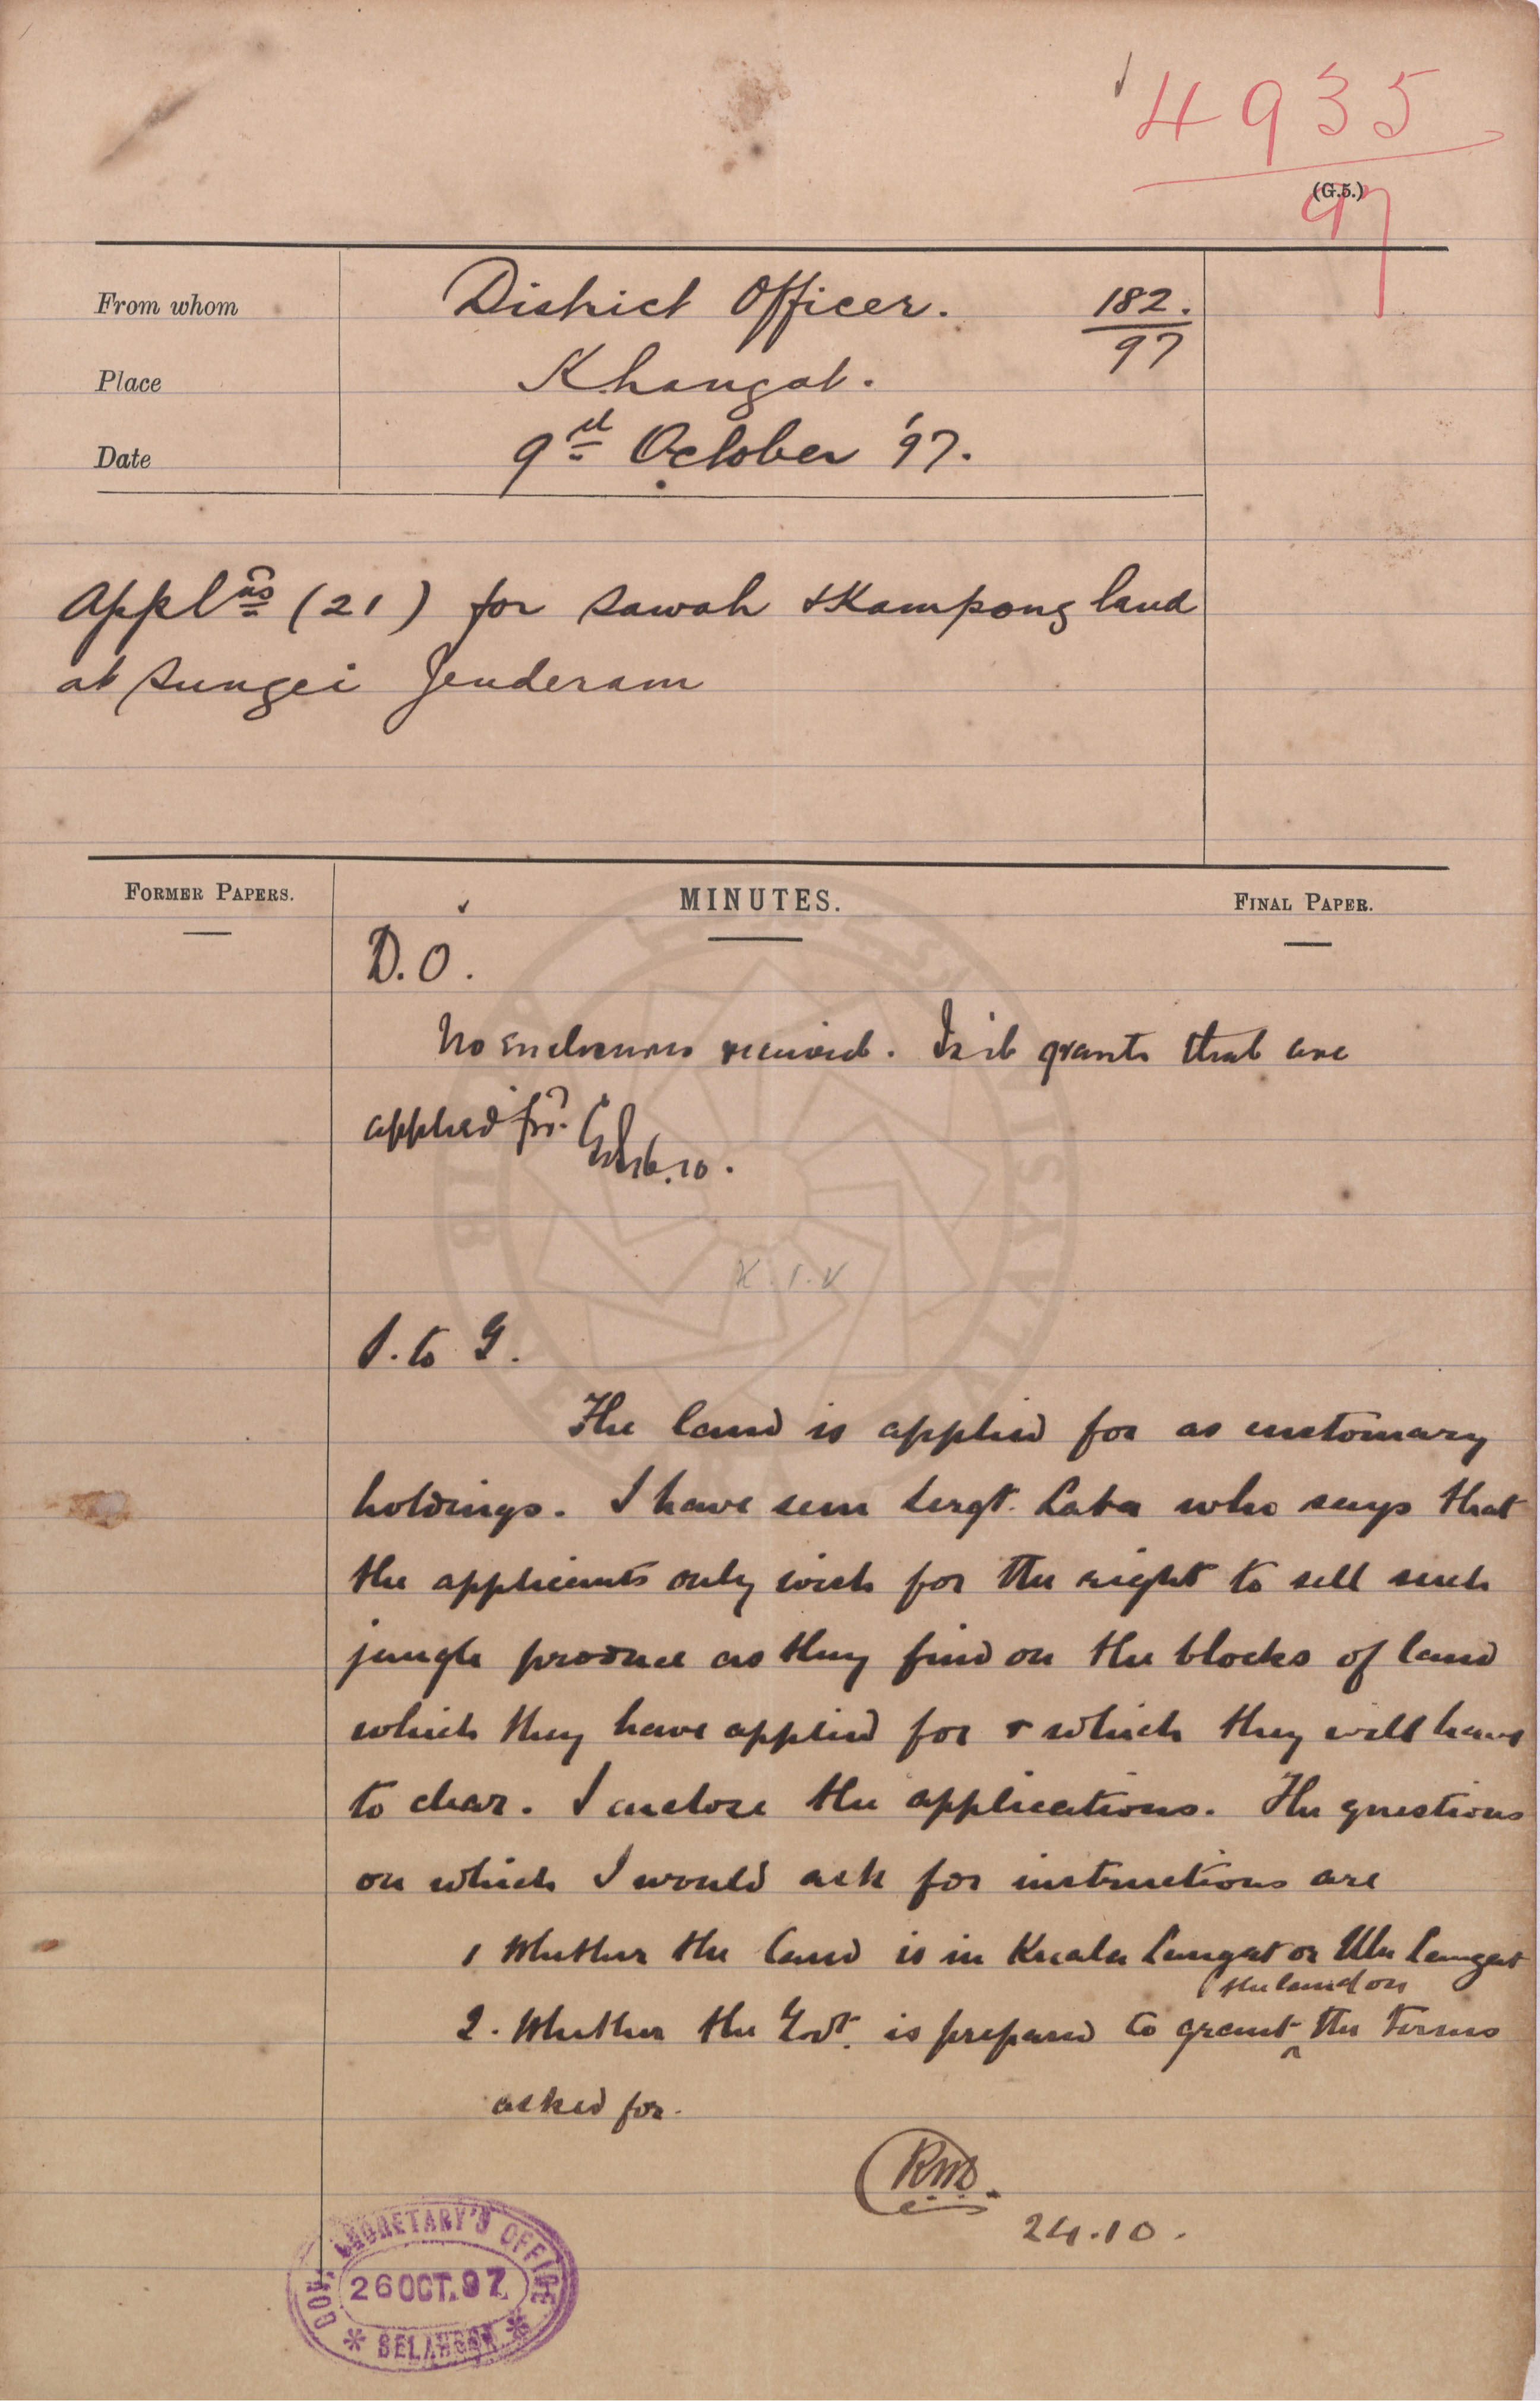 4935
97
(G.5.)
From whom
District Officer.
182.
97
Place
K. Langat.
Date
9th October '97.
Applns (21) for sawah & Kampong land
at Sungei Jenderam
FORMER PAPERS.
MINUTES.
FINAL PAPER.
D.O.
No enclosures received. Is it grants that are
applied for?
16.10.
K.I.V
S. to G.
The land is applied for as customary
holdings. I have seen Sergt. Laba who says that
the applicants only wish for the right to sell such
jungle produce as they find on the blocks of land
which they have applied for & which they will have
to clear. I enclose the applications. The questions
on which I would ask for instructions are
1 Whether the land is in Kuala Langat or Ulu Langat
2. Whether the Govt. is prepared to grant the land on the terms
asked for.
24.10.
GOVT. SECRETARY'S OFFICE
26 OCT. 97
* SELANGOR *